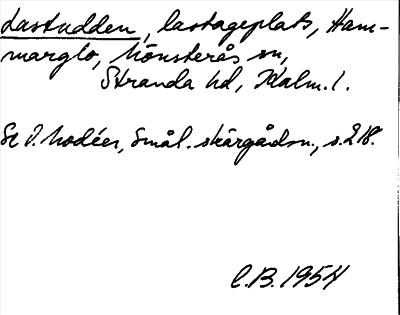 Lastudden, lastageplats, Ham-
marglo, Mönsterås sn,
Stranda hd, Kalm. l.
Se I. Modéer, Smål. skärgårdsn., s. 218.
C.B. 1954